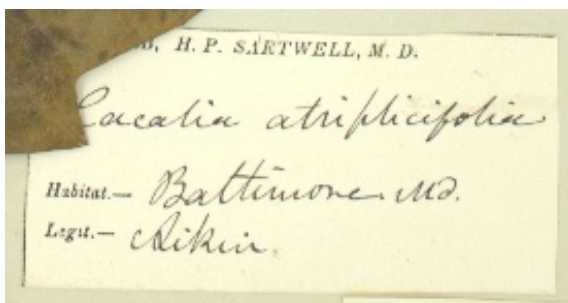 H. P. SARTWELL, M. D.
Cacalia atriplicifolia
Habitat.— Baltimore. Md.
Legit.— Aikin.